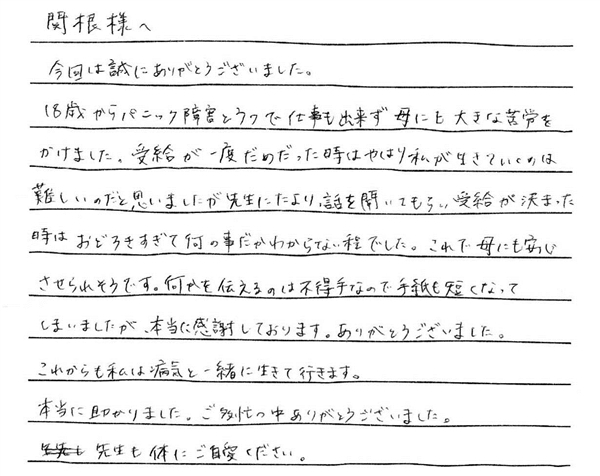 関根様へ
今回は誠にありがとうございました。
18歳からパニック障害とうつで仕事も出来ず母にも大きな苦労を
かけました。受給が一度だめだった時はやはり私が生きていくのは
難しいのだと思いましたが先生にたより、話を聞いてもらい受給が決まった
時はおどろきすぎて何の事だかわからない程でした。これで母にも安心
させられそうです。何かを伝えるのは不得手なので手紙も短くなって
しまいましたが、本当に感謝しております。ありがとうございました。
これからも私は病気と一緒に生きて行きます。
本当に助かりました。ご多忙の中ありがとうございました。
先生も体にご自愛ください。